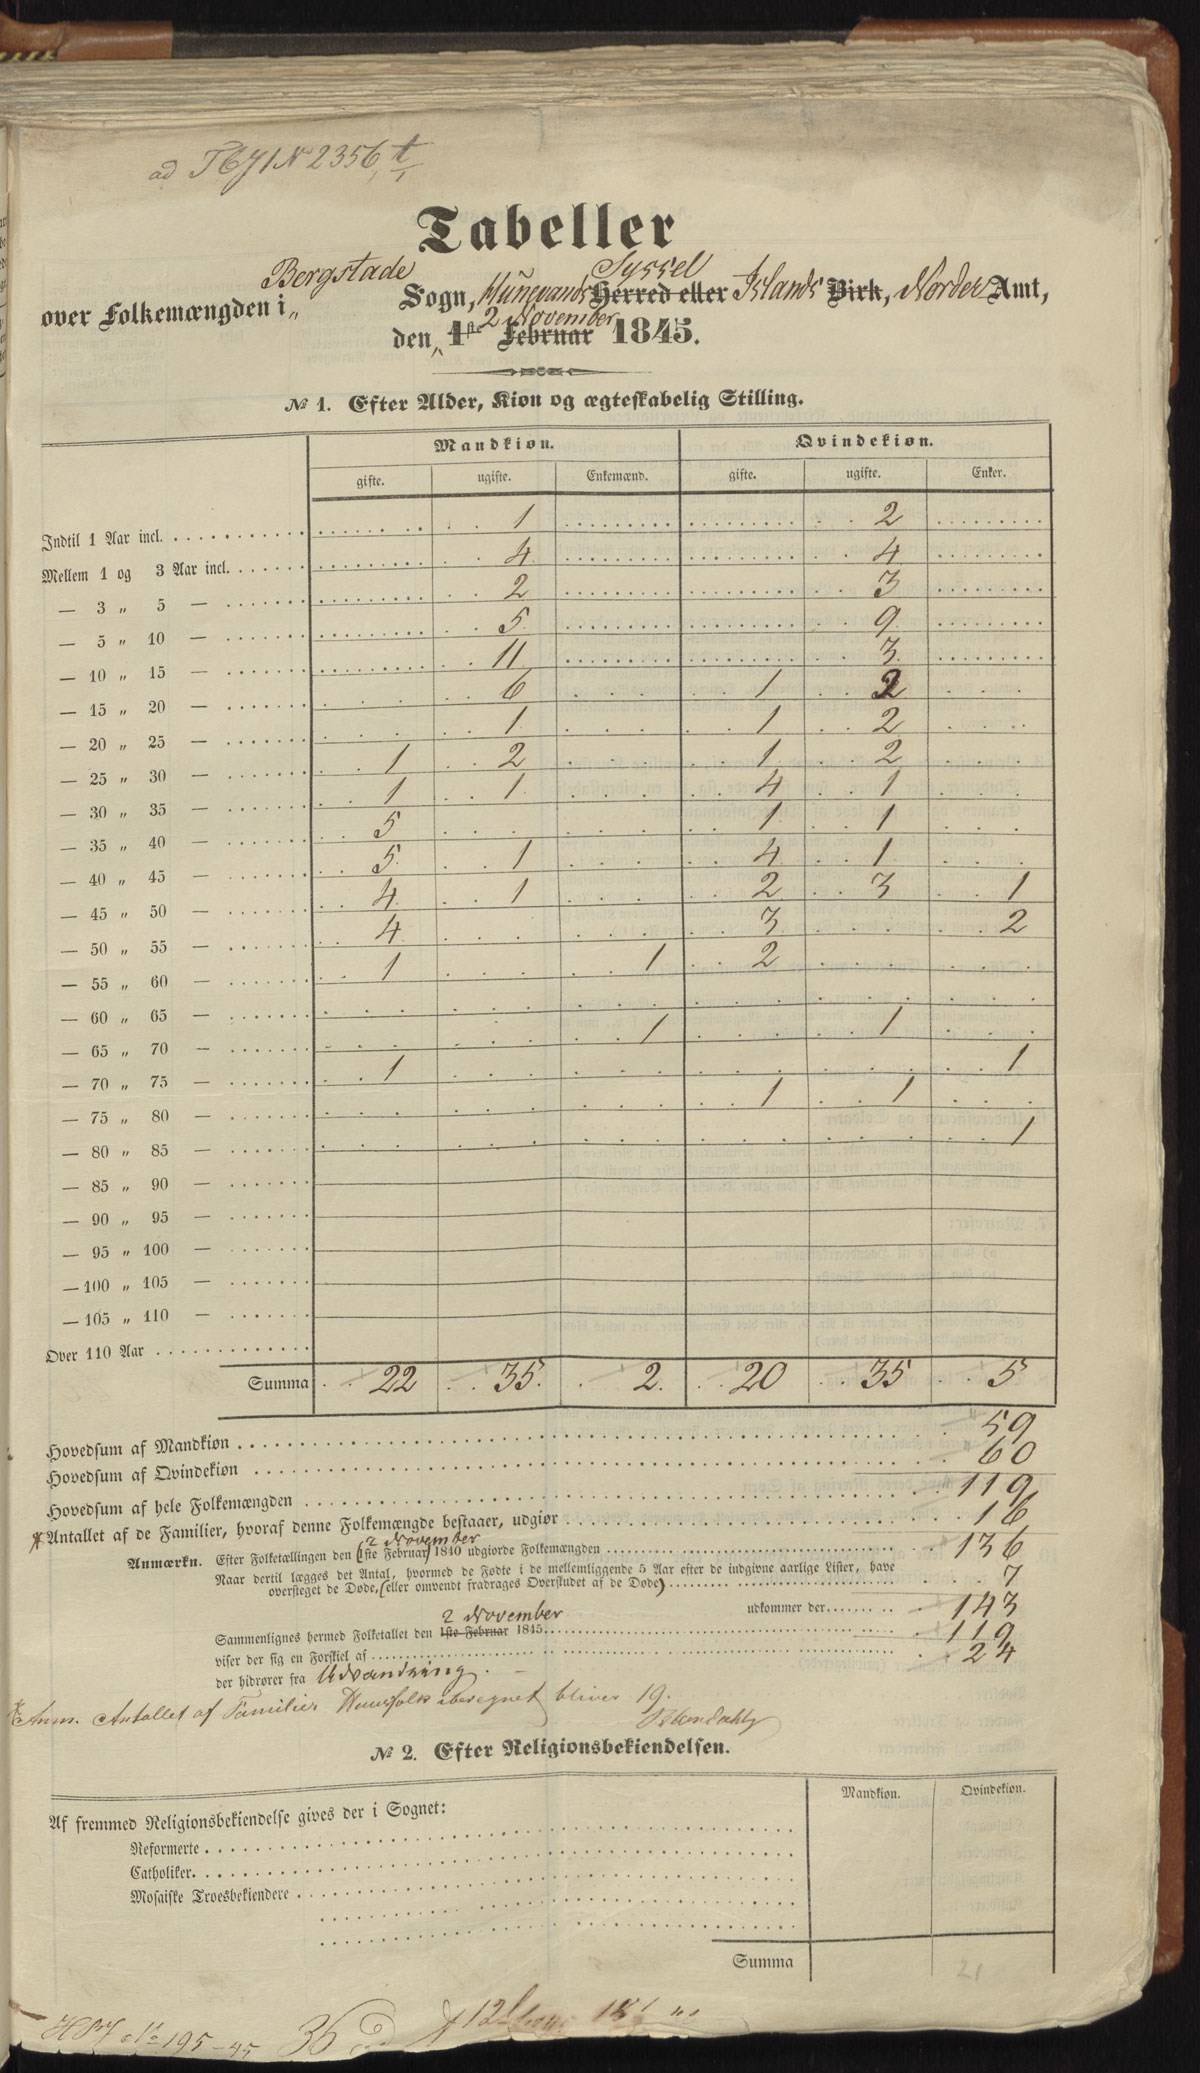 ad N 2356
Tabeller
over Folkemængden i Bergstade Sogn, Hunevands Syssel Herred eller Islands Birk, Norder Amt,
den 2 November 1ste Februar 1845.
№ 1. Efter Alder, Kiøn og ægteskabelig Stilling.
Mandkiøn. Qvindekiøn.
gifte. ugifte. Enkemænd. gifte. ugifte. Enker.
Indtil 1 Aar incl. 1 2
Mellem 1 og 3 Aar incl. 4 4
— 3 „ 5 — 2 3
— 5 „ 10 — 5 9
— 10 „ 15 — 11 3
— 15 „ 20 — 6 1 2
— 20 „ 25 — 1 1 2
— 25 „ 30 — 1 2 1 2
— 30 „ 35 — 1 1 4 1
— 35 „ 40 — 5 1 1
— 40 „ 45 — 5 1 4 1
— 45 „ 50 — 4 1 2 3 1
— 50 „ 55 — 4 3 2
— 55 „ 60 — 1 1 2
— 60 „ 65 —
— 65 „ 70 — 1 1
— 70 „ 75 — 1 1
— 75 „ 80 — 1 1
— 80 „ 85 — 1
— 85 „ 90 —
— 90 „ 95 —
— 95 „ 100 —
— 100 „ 105 —
— 105 „ 110 —
Over 110 Aar
Summa 22 35 2 20 35 5
Hovedsum af Mandkiøn 59
Hovedsum af Qvindekiøn 60
Hovedsum af hele Folkemængden 119
Antallet af de Familier, hvoraf denne Folkemængde bestaaer, udgiør 16
Anmærkn. Efter Folketællingen den 2 November (1ste Februar) 1840 udgiorde Folkemængden 136
Naar dertil lægges det Antal, hvormed de Fødte i de mellemliggende 5 Aar efter de indgivne aarlige Lister, have
oversteget de Døde, (eller omvendt fradrages Overskudet af de Døde) 7
udkommer der 143
Sammenlignes hermed Folketallet den 2 November 1ste Februar 1845 119
viser der sig en Forskiel af 24
der hidrører fra Udvandring.
Anm. Antallet af Familier Huusfolk iberegnet bliver 19.
№ 2. Efter Religionsbekiendelsen.
Mandkiøn. Qvindekiøn.
Af fremmed Religionsbekiendelse gives der i Sognet:
Reformerte
Catholiker
Mosaiske Troesbekiendere
Summa
21
195-45 36